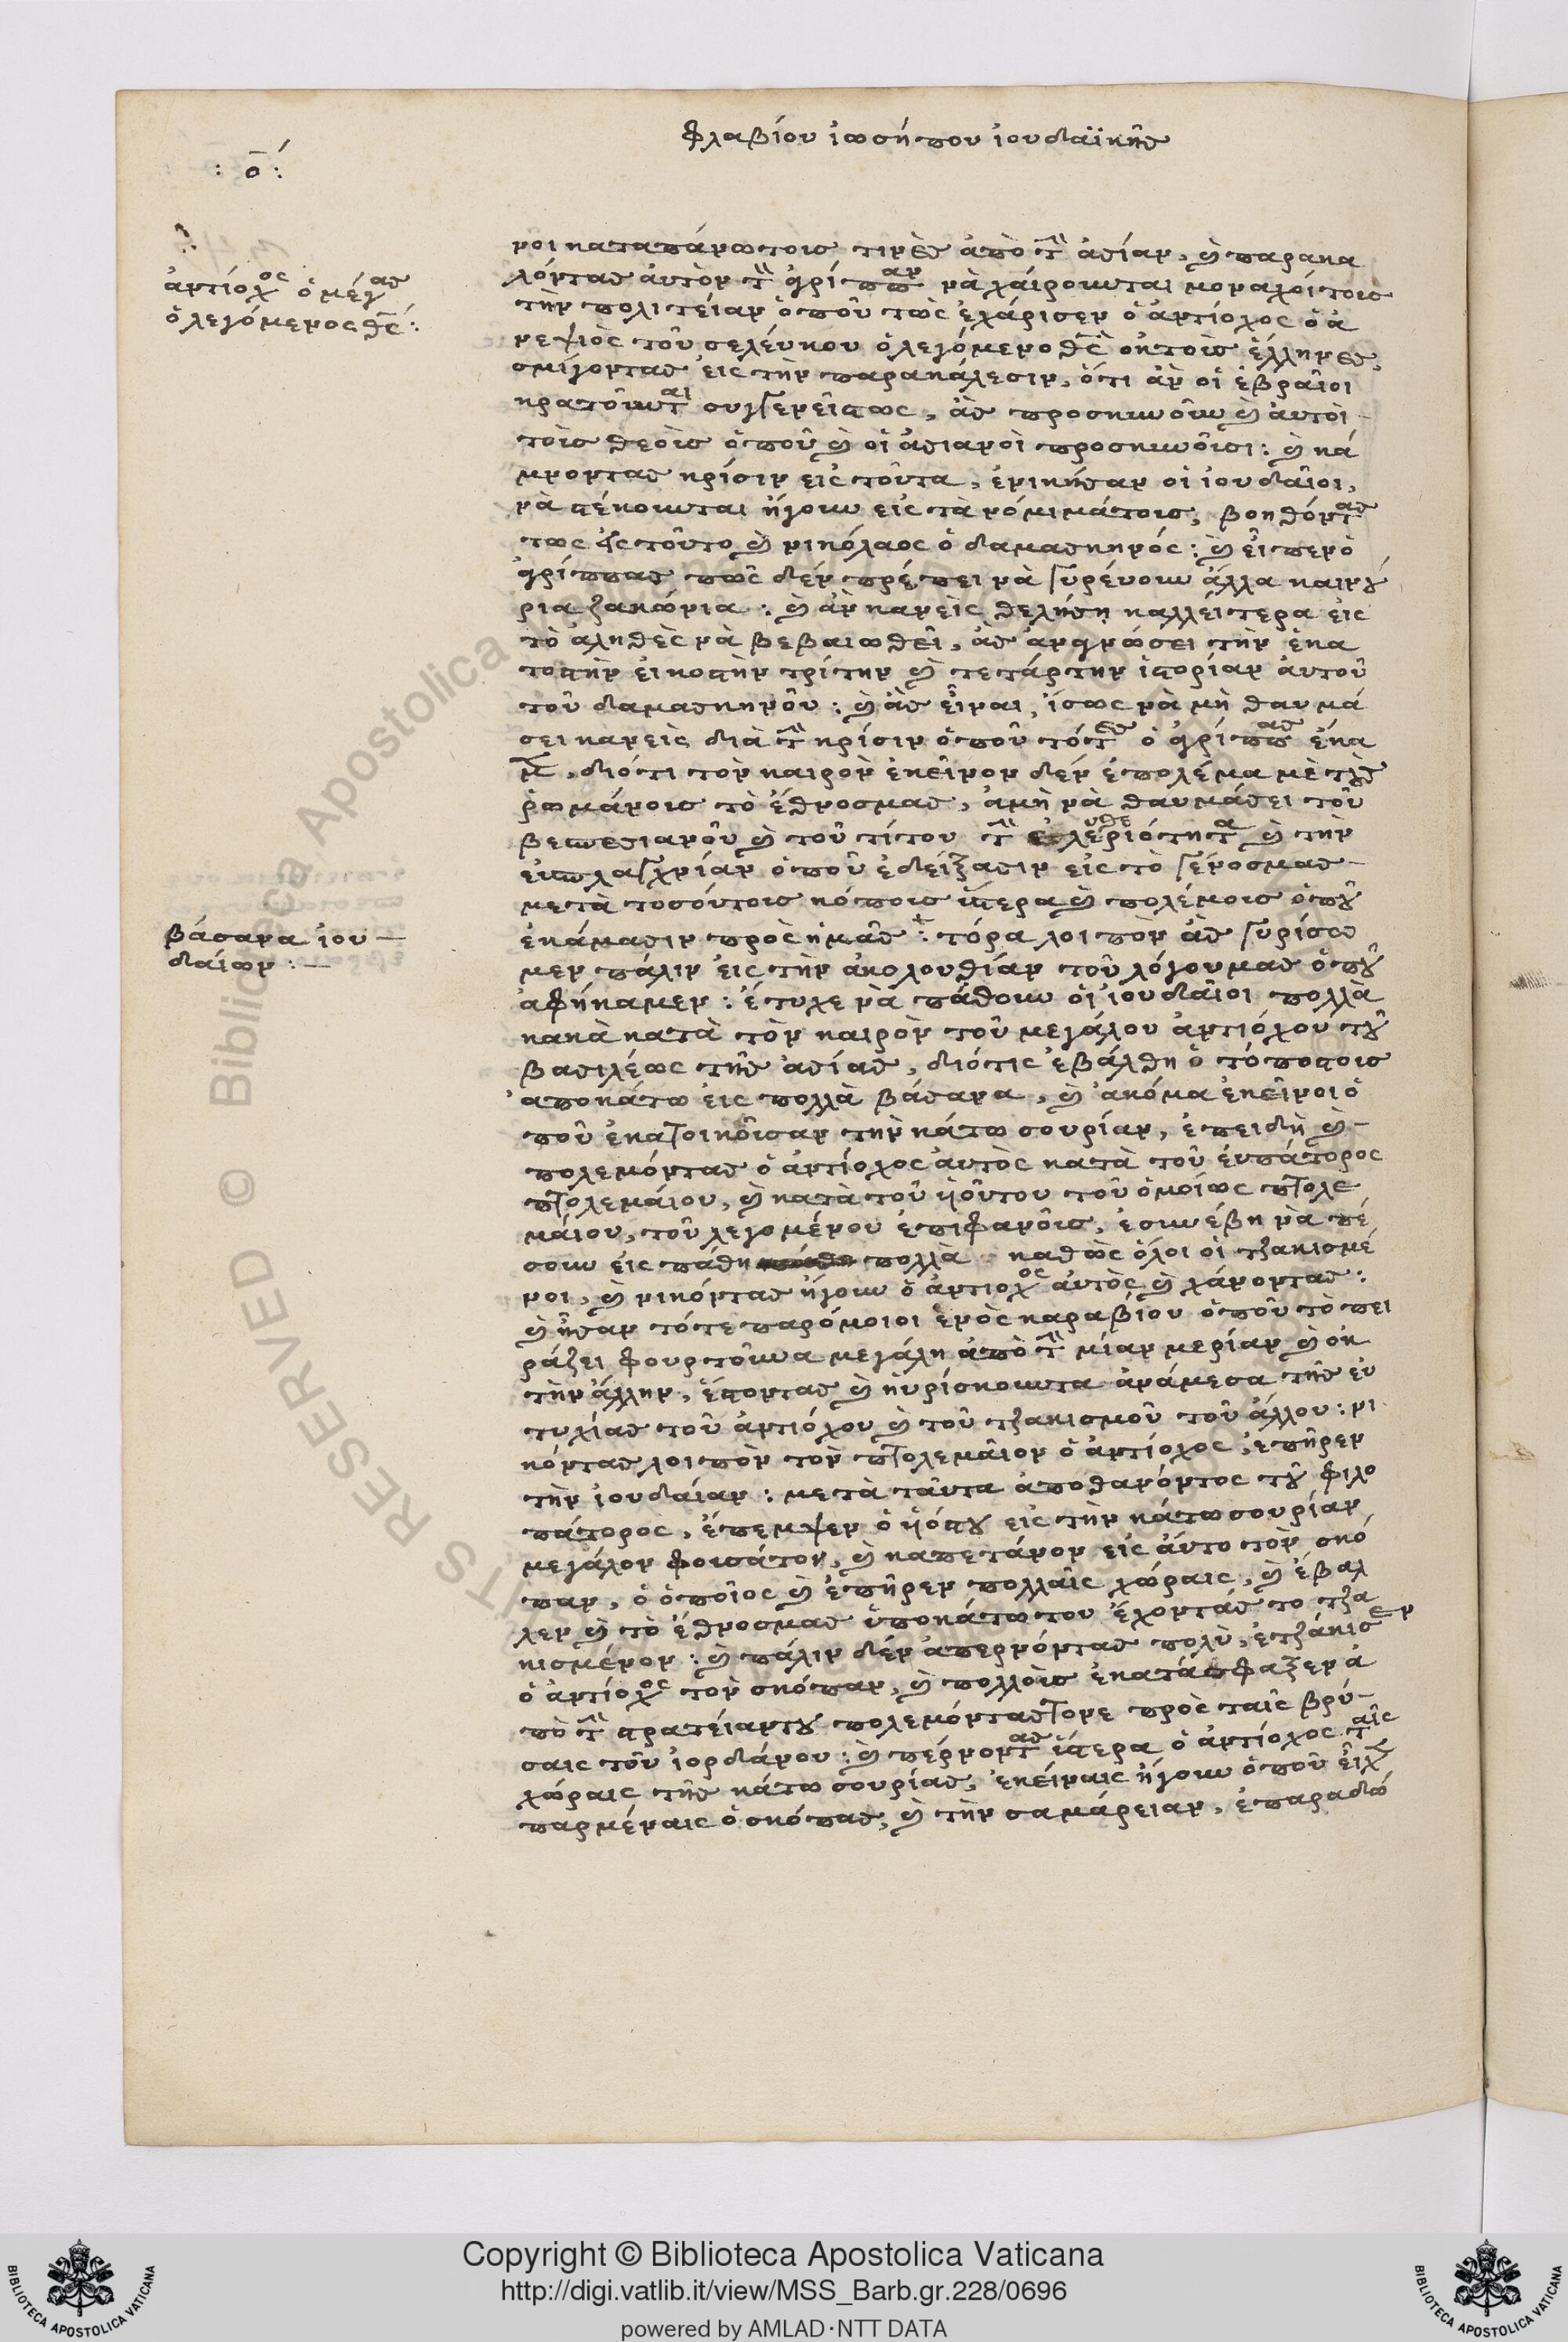 φλαβίου ἰωσήπου ἰουδαϊκῆς
: ο̄ :΄
ἀντίοχος ὁ μέγας
ὁ λεγόμενος θς̄ :
νοι κατεπάνωτοις τινὲς ἀπὸ τὴν ἀσίαν, καὶ παρακα
λόντας ἀυτὸν τὸν ἀγρίππαν νὰ χάιρουνται μοναχοί τοις
τὴν πολιτείαν ὁποῦ τως ἐχάρισεν ὁ ἀντίοχος ὁ ἀ
νεψιὸς τοῦ σελέυκου ὁ λεγόμενο θς̄ οκτοὶς ἕλληνες,
σμίγοντας εἰς τὴν παρακάλεσιν, ὅτι ἂν οἱ ἑβραῖοι
κρατοῦνται συγγενεῖς τως, ἂς προσκυνοῦν καὶ ἀυτοὶ
τοὶς θεοὶς ὁποῦ καὶ οἱ ἀσιανοὶ προσκυνοῦσι : καὶ κά
μνοντας κρίσιν εἰς τοῦτα, ἐνικήσαν οἱ ἰουδαῖοι,
νὰ στέκουνται ἤγουν εἰς τὰ νόμιμάτοις, βοηθόντας
τως εἰς τοῦτο καὶ νικόλαος ὁ δαμασκηνός : καὶ εἶπεν ὁ
ἀγρίππας πῶς δὲν πρέπει νὰ γυρέυουν ἄλλα καινού
ρια ζακώνια : καὶ ἂν κανεὶς θελήσῃ καλλείτερα εἰς
τὸ ἀληθὲς νὰ βεβαιωθεῖ, ἂς ἀναγνώσει τὴν ἑκα
τοστὴν εἰκοστὴν τρίτην καὶ τετάρτην ἱστορίαν ἀυτοῦ
τοῦ δαμασκηνοῦ : καὶ ἂς εἶναι, ἴσως νὰ μὴ θαυμά
σει κανεὶς διὰ τὴν κρίσιν ὁποῦ τότες ὁ ἀγρίππας ἔκα
μεν, διότι τὸν καιρὸν ἐκεῖνον δὲν ἐπολέμα μὲ τοὺς
ῥωμάνοις τὸ ἔθνοσμας, ἀμὴ νὰ θαυμάσει τοῦ
βεσπεσιανοῦ καὶ τοῦ τίτου τὴν ἐλευθεριότητα καὶ τὴν
ἐυσπλαγχνίαν ὁποῦ ἐδείξασιν εἰς τὸ γένοσμας
μετὰ τοσούτοις κόποις ὕστερα καὶ πολέμοις ὁποῦ
ἐκάμασιν πρὸς ἡμᾶς : τόρα λοιπὸν ἂς γυρίσω
μεν πάλιν εἰς τὴν ἀκολουθίαν τοῦ λόγου μας ὁποῦ
βάσανα ἰου
δαίων :
ἀφήκαμεν : ἔτυχε νὰ πάθουν οἱ ἰουδαῖοι πολλὰ
κακὰ κατὰ τὸν καιρὸν τοῦ μεγάλου ἀντιόχου τοῦ
βασιλέως τῆς ἀσίας, διότις ἐβάλθη ὁ τόποστοις
ἀποκάτω εἰς πολλὰ βάσανα, καὶ ἀκόμα ἐκεῖνοι ὁ
ποῦ ἐκατοικοῦσαν τὴν κάτω σουρίαν, ἐπειδὴ καὶ
πολεμόντας ὁ ἀντίοχος ἀυτὸς κατὰ τοῦ ἐυπάτορος
πτολεμάιου, καὶ κατὰ τοῦ ὑιοῦντου τοῦ ὁμοίως πτολε
μάιου, τοῦ λεγομένου ἐπιφανοῦς, ἐσυνέβη νὰ πέ
σουν εἰς πάθη πολλὰ καθὼς ὅλοι οἱ τζακισμέ
νοι, καὶ νικόντας ἤγουν ὁ ἀντίοχος ἀυτὸς καὶ χάνοντας :
καὶ ἦσαν τότε παρόμοιοι ἑνὸς καραβίου ὁποῦ τὸ πει
ράζει φουρτοῦνα μεγάλη ἀπὸ τὴν μίαν μερίαν καὶ οκ
τὴν ἄλλην, ἔστοντας καὶ ἠυρίσκουντα ἀνάμεσα τῆς ἐυ
τυχίας τοῦ ἀντιόχου καὶ τοῦ τζακισμοῦ τοῦ ἄλλου : νι
κόντας λοιπὸν τὸν πτολεμαῖον ὁ ἀντίοχος, ἐπῆρεν
τὴν ἰουδαίαν : μετὰ ταῦτα ἀποθανόντος τοῦ φιλο
πάτορος, ἔπεμψεν ὁ ὑιόςτου εἰς τὴν κάτω σουρίαν
μεγάλον φουσάτον, καὶ καπετάνον εἰς ἀυτο τὸν σκό
παν, ὁ ὁποῖος καὶ ἐπῆρεν πολλαῖς χώραις, καὶ ἔβαλ
λεν καὶ τὸ ἔθνοσμας ὑποκάτω του ἔχοντας το τζα
κισμένον : καὶ πάλιν δὲν ἀπερνόντας πολὺ, ἐτζάκισεν
ὁ ἀντίοχος τὸν σκόπαν, καὶ πολλοὶς ἐκατάσφαξεν ἀ
πὸ τὴν στρατείαντου πολεμόντας τονε πρὸς ταῖς βρύ
σαις τοῦ ἰορδάνου : καὶ πέρνοντας ὕστερα ὁ ἀντίοχος ταῖς
χώραις τῆς κάτω σουρίας, ἐκείναις ἤγουν ὁποῦ εἶχεν
παρμέναις ὁ σκόπας, καὶ τὴν σαμάρειαν, ἐπαραδώ
Copyright © Biblioteca Apostolica Vaticana
http://digi.vatlib.it/view/MSS_Barb.gr.228/0696
powered by AMLAD·NTT DATA